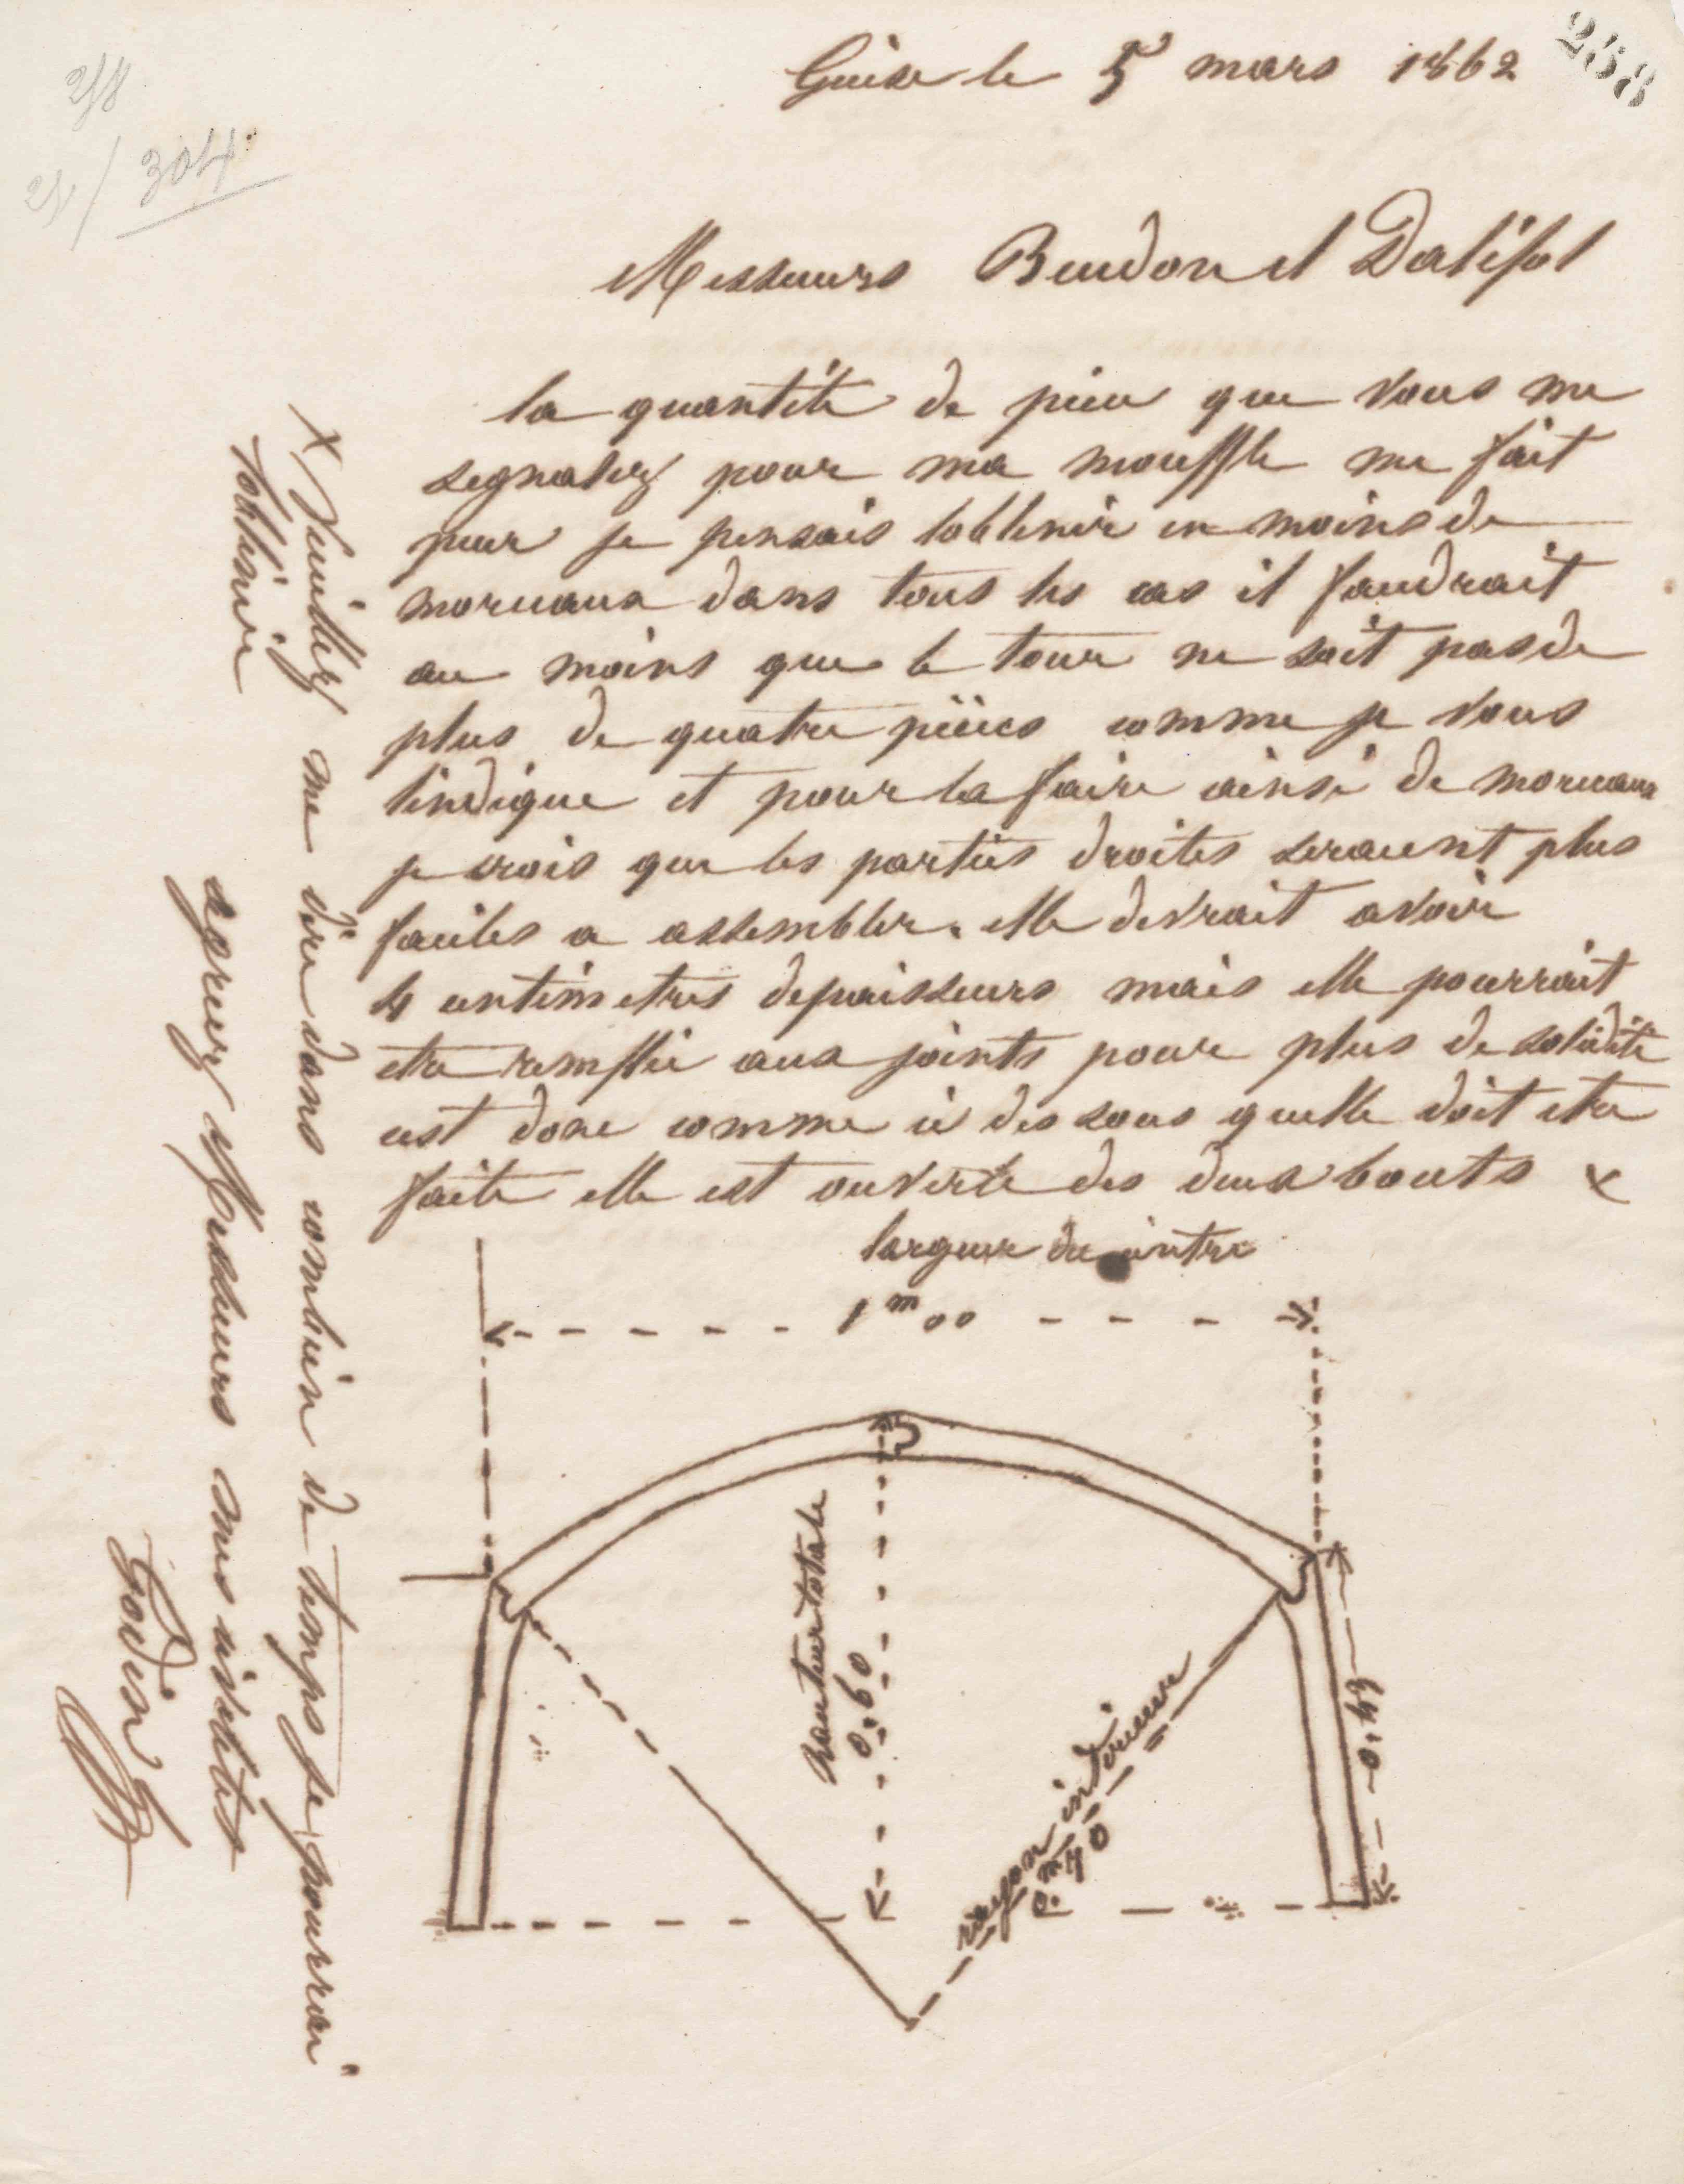 258
Guise le 5 mars 1862
258
21/304
Messieurs Boudon et Dalifol
la quantité de pièce que vous me
segnalez pour ma mouffle me fait
peur je pensais lobtenir en moins de
morceaux dans tous les cas il faudrait
au moins que le tour ne soit pas de
plus de quatre pièces comme je vous
lindique et pour la faire ainsi de morceaux
je crois que les parties droites seraient plus
faciles a assembler. elle devrait avoir
4 centimetres depaisseurs mais elle pourrait
etre remflée aux joints pour plus de solidité
cest donc comme ci dessous quelle doit etre
faite elle est ouverte des deux bouts x
largeur du cintre
1 m 00
hauteur totale
0.60
rayon interieur
0. m 70
0.44
x Veuillez me dire dans combien de temps je pourrai
lobtenir
agreez Messieurs mes civilités
Godin